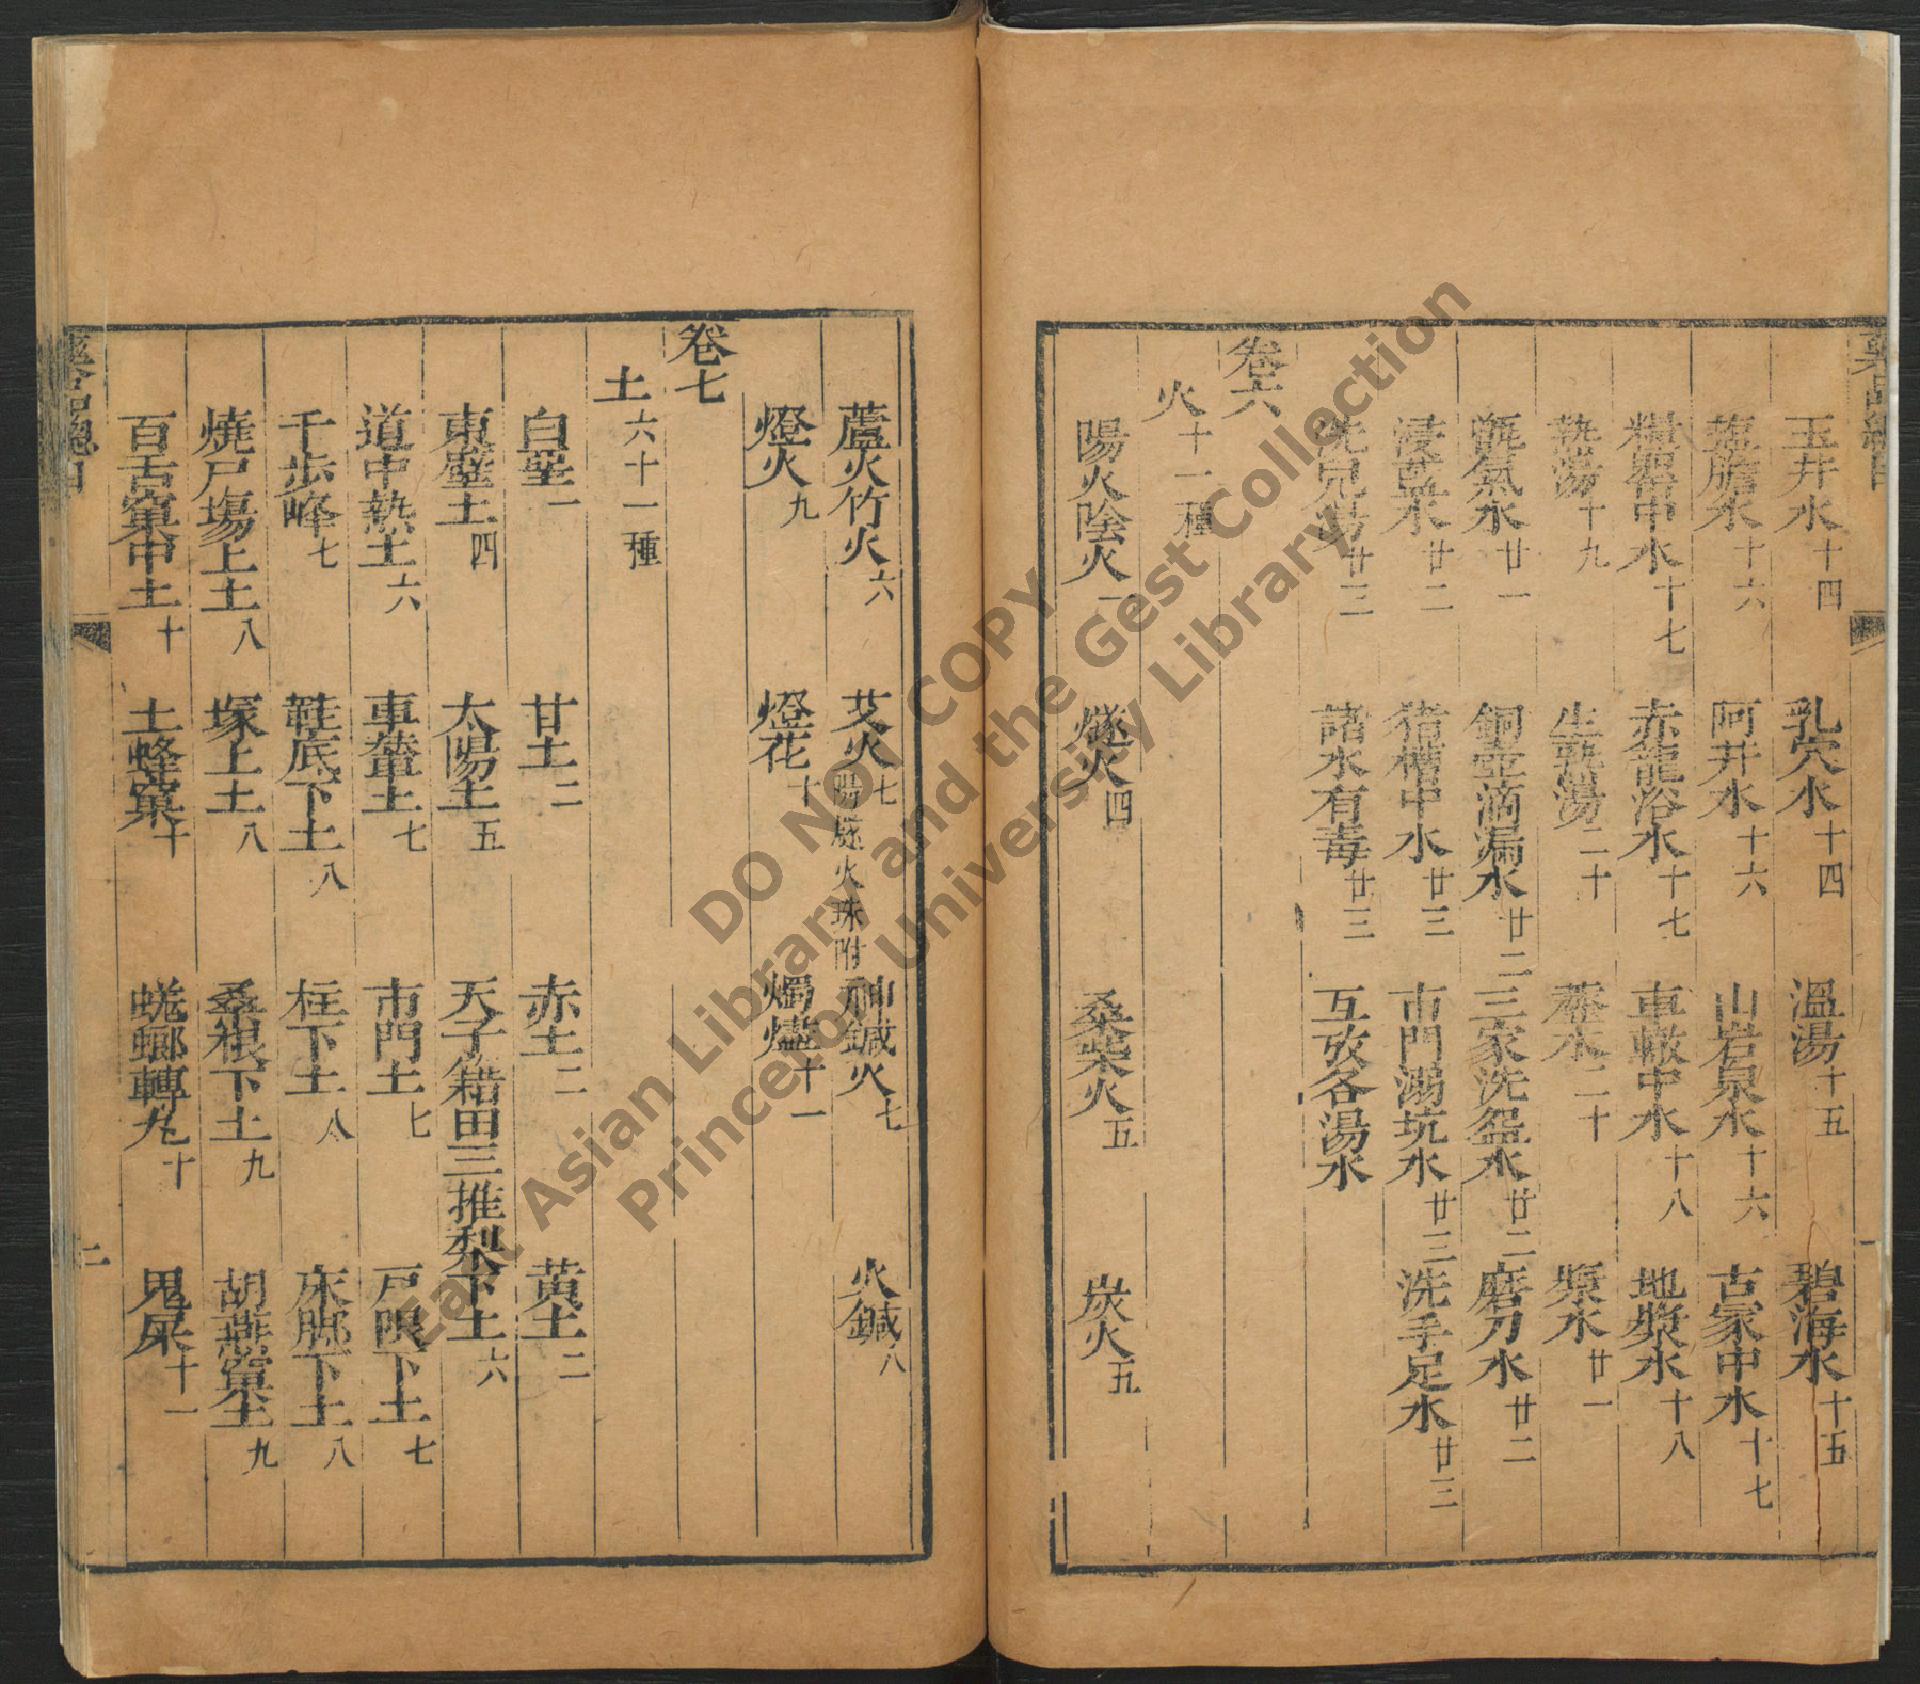 玉井水十四 乳穴水十四 溫湯十五 碧海水十五
鹽膽水十六 阿井水十六 山岩泉水十六 古冢中水十七
糧罌中水十七 赤龍浴水十七 車轍中水十八 地漿水十八
熱湯十九 生熟湯二十 虀水二十 漿水廿一
甑氣水廿一 銅壺滴漏水廿二 三家洗盌水廿二 磨刀水廿二
浸藍水廿二 猪槽中水廿三 市門溺坑水廿三 洗手足水廿三
洗兒湯廿三 諸水有毒廿三 互攷各湯水
卷六
火十一種
陽火陰火一 燧火四 桑柴火五 炭火五
蘆火竹火六 艾火七陽燧火珠附 神鍼火七 火鍼八
燈火九 燈花十 燭燼十一
卷七
土六十一種
白堊一 甘土二 赤土二 黃土二
東壁土四 太陽土五 天子籍田三推犁下土六
道中熱土六 車輦土七 市門土七 戸限下土七
千步峰七 鞋底下土八 柱下土八 床脚下土八
燒尸塲上土八 塚上土八 桑根下土九 胡燕窠土九
百舌窠中土十 土蜂窠十 蜣蜋轉丸十 鬼屎十一
二
DO NOT COPY
East Asian Library and the Gest Collection
Princeton University Library